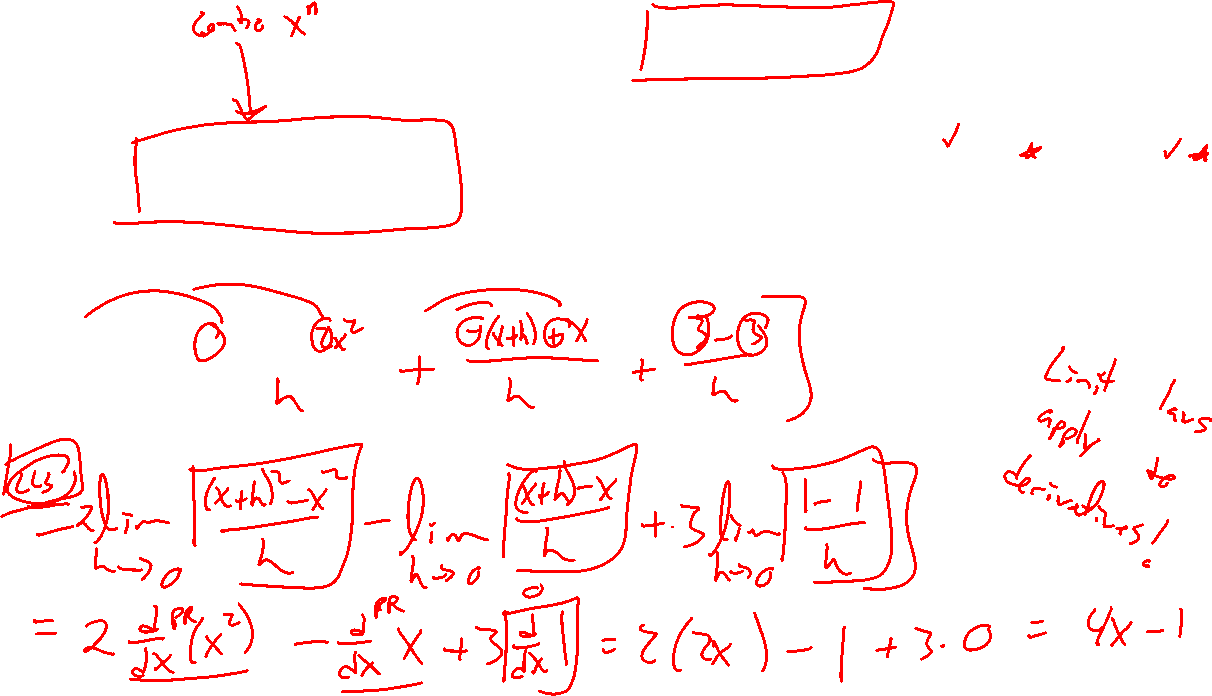 combo xⁿ
2x² / h + (-(x+h)+x) / h + (3-3) / h ]
Limit laws
apply to
derivatives!
LLs = 2 lim h→0 [((x+h)²-x²) / h] - lim h→0 [((x+h)-x) / h] + 3 lim h→0 [(1-1) / h]
0
= 2 d/dx PR (x²) - d/dx PR x + 3 [d/dx 1] = 2(2x) - 1 + 3·0 = 4x-1